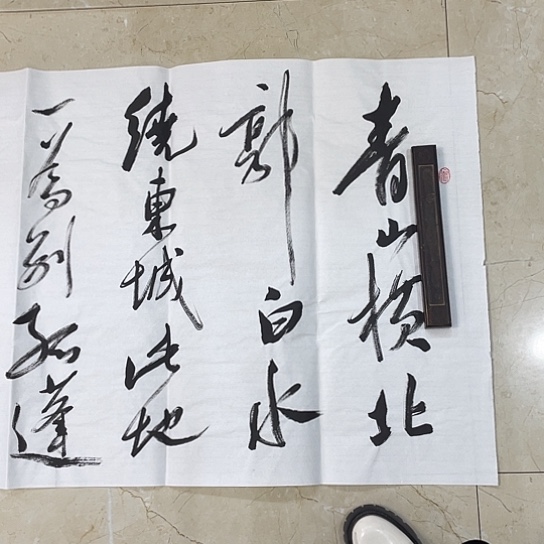 青山横北
郭白水
繞東城此地
一為别孤蓬